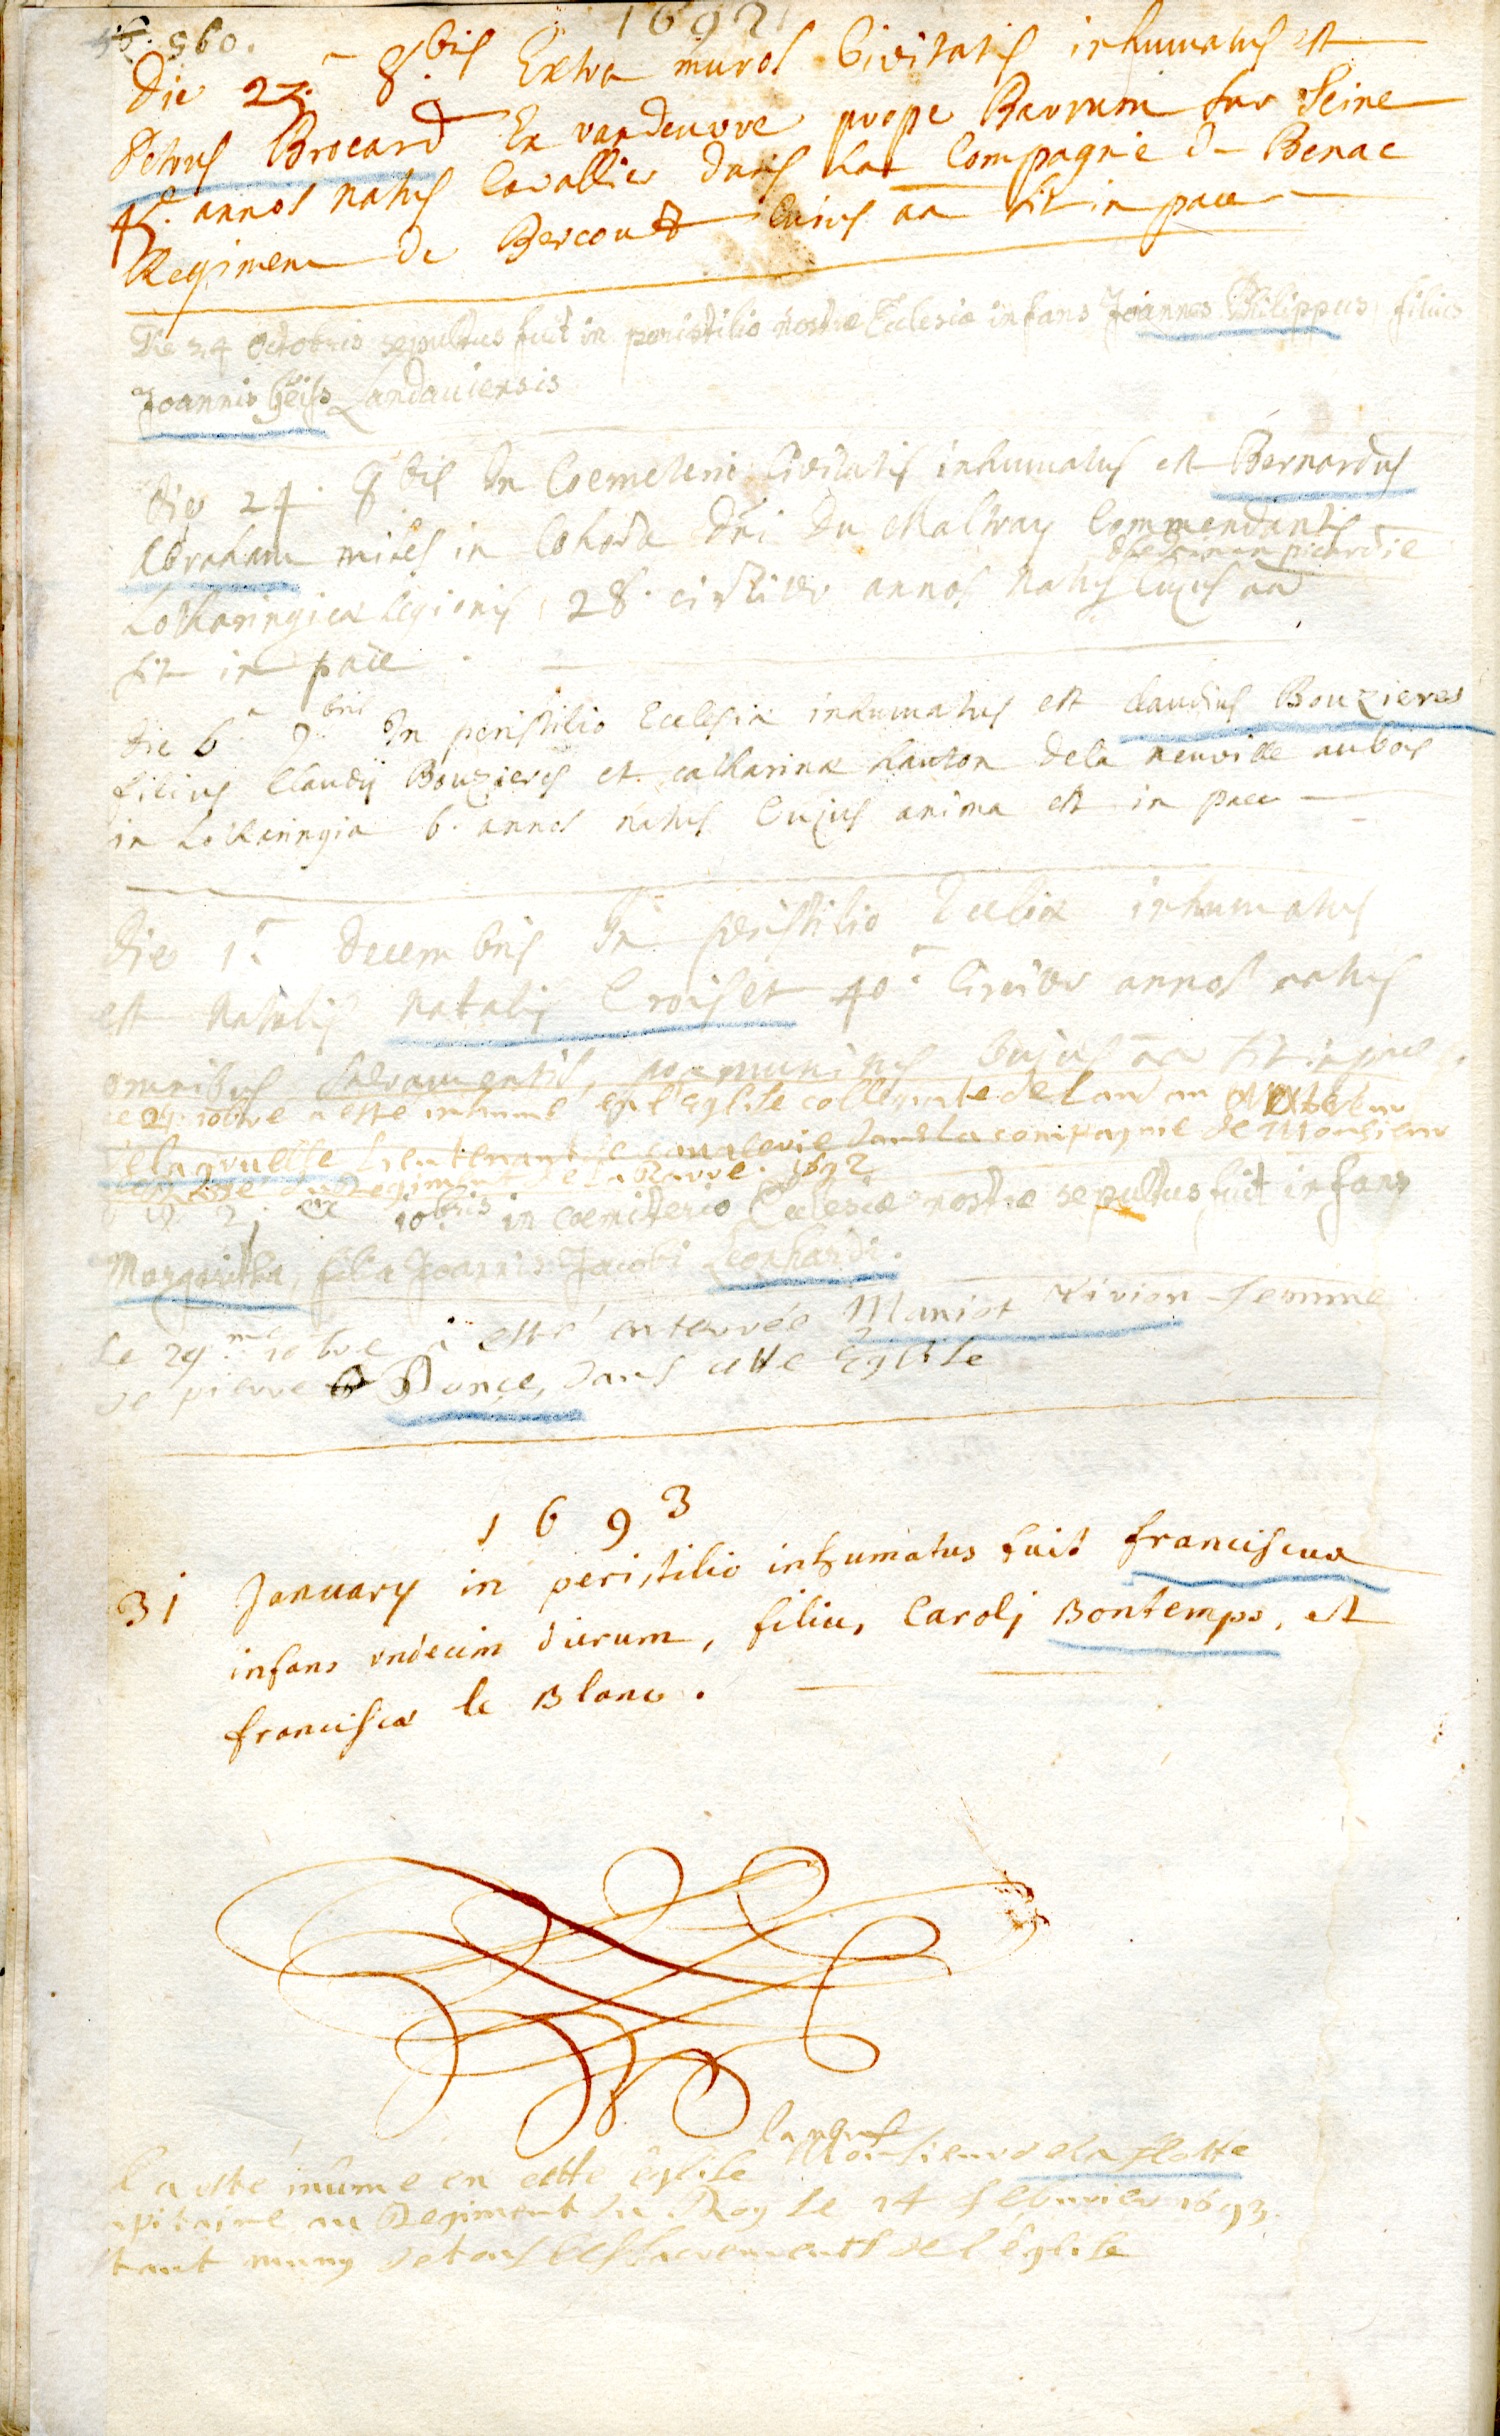 560. 1692
Die 27.a 8bris Extra muros Civitatis inhumatus est
Petrus Brocard Ex vandeuvre prope Barrum sur Seine
45. annos natus Cavallier dans la Compagnie de Benac
Regimene de Bercourt Cuius aa sit in pace
Die 24 octobris sepultus fuit in peristilio nostræ Ecclesiæ infans Joannes Philippus filius
Joannis Geiss Landaviensis
Die 24. 8bis In Coemeterio Civitatis inhumatus est Bernardus
Abraham miles in Cohorte Dni Du Malway Commendantis
picardie
Lotharingicæ legionis 28. circiter annos natus Cujus aa
sit in pace
Die 6a 9bris In peristilio Ecclesiæ inhumatus est claudius Bouzieres
filius Claudij Bouzieres et catharinæ hanton dela neuville aubois
in Lotharingia 6. annos natus Cujus anima est in pace
Die 1.a Decembris In peristilio Eccliæ inhumatus
est Natalis Natalis Croiset 40.a Circiter annos natus
omnibus Sacramentis præmunitus Cujus aa sit in pace
ce 24. 10bre a esté inhumé en l'Eglise collegiate de Landau
delagruesse Lieutenant de cavalerie dans la compagnie de Monsieur
du Regiment de la Barre. 1692
Die 2j 10bris in coemiterio Ecclesiæ nostræ sepultus fuit infans
Margaritha, filia Joannis Jacobi Leonhardi.
Le 29.me 10bre a esté enterrée Maniot Rivion femme
de pierre Ponce, dans cette Eglise
1693
31 January in peristilio inhumatus fuit franciscus
infans undecim dierum, filius Caroli Bontemps, et
franciscæ le Blanc.
La esté inûme en cette église Monsieur de la flotte
apitaine au Regiment du Roy le 14 febvrier 1693.
tant muny de tous les sacrements de l'église